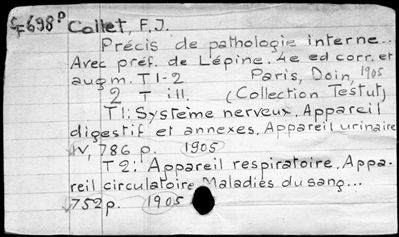 C F698P Collet, F.J.
Précis de pathologie interne...
Avec préf. de Lépine. 4e ed corr. et
augm. T 1-2 Paris, Doin, 1905
2 T ill. (Collection Testut)
T1: Système nerveux. Appareil
digestif et annexes. Appareil urinaire
IV, 786 p. 1905
T2: Appareil respiratoire. Appa-
reil circulatoire Maladies du sang...
752p. 1905